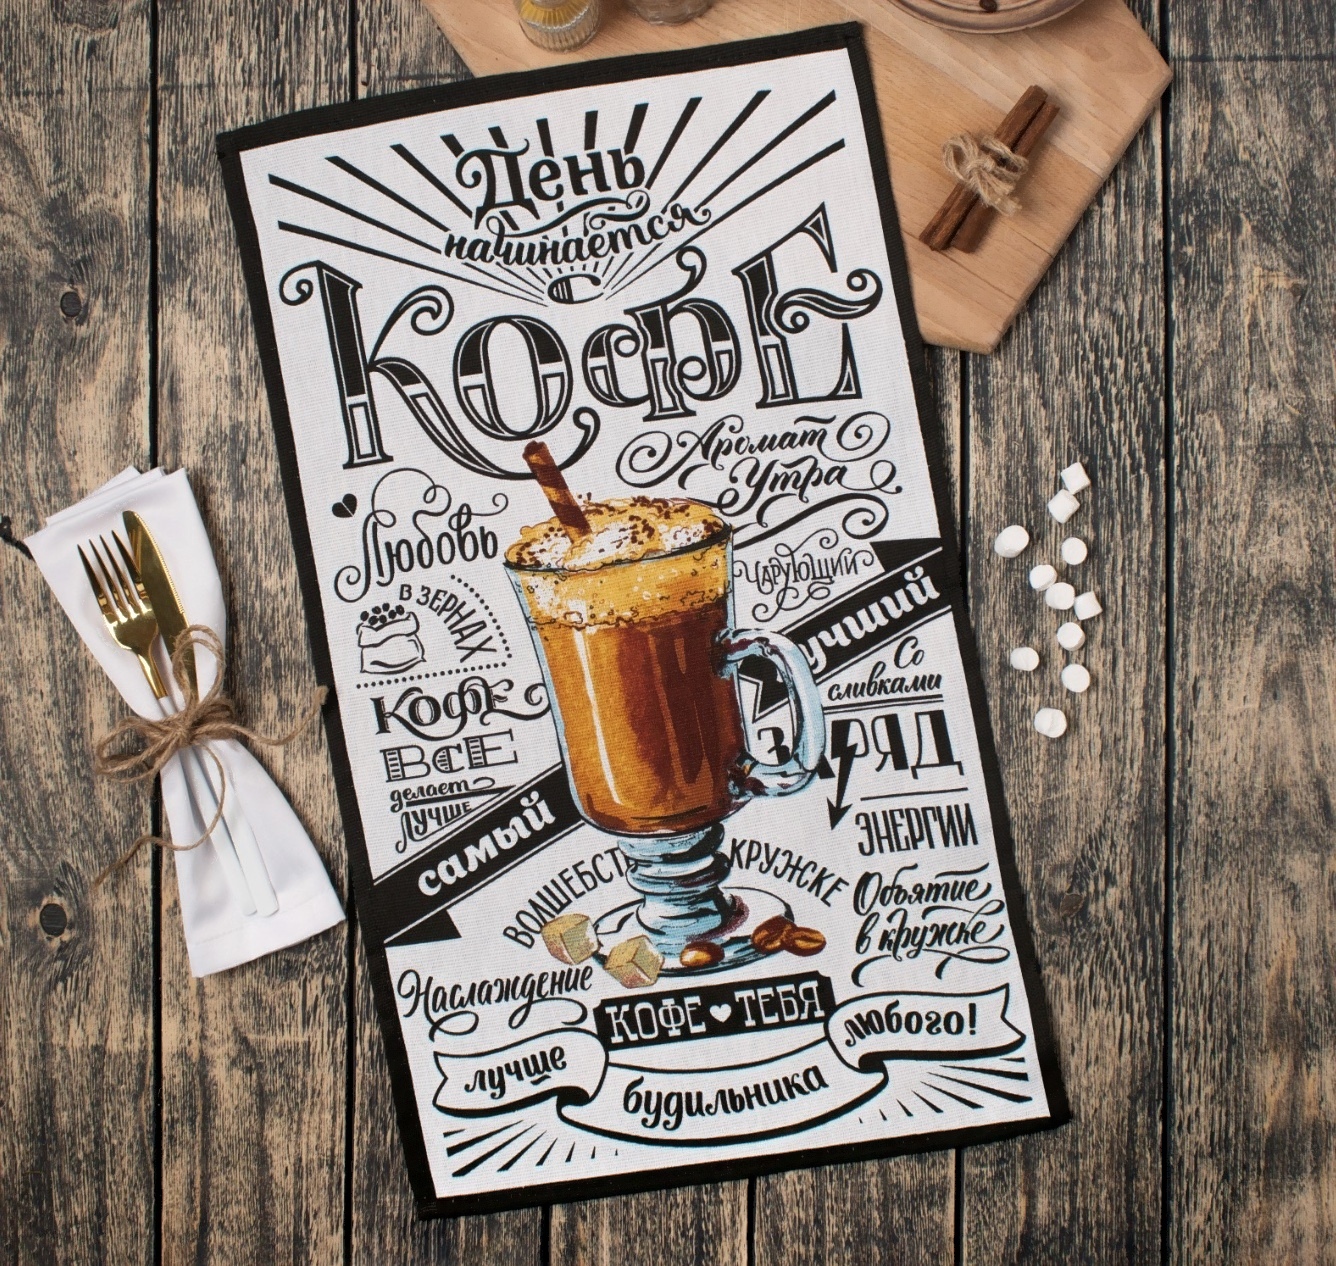 День
начинается
с
КофЕ
Аромат
Утра
Любовь
в зернах
Чарующий
учший
Со
сливками
Кофе
ВСЕ
делает
ЛУЧШЕ
З РЯД
ЭНЕРГИИ
самый
ВОЛШЕБСТ
КРУЖКЕ
Объятие
в кружке
Наслаждение
КОФЕ ТЕБЯ
лучше
будильника
любого!